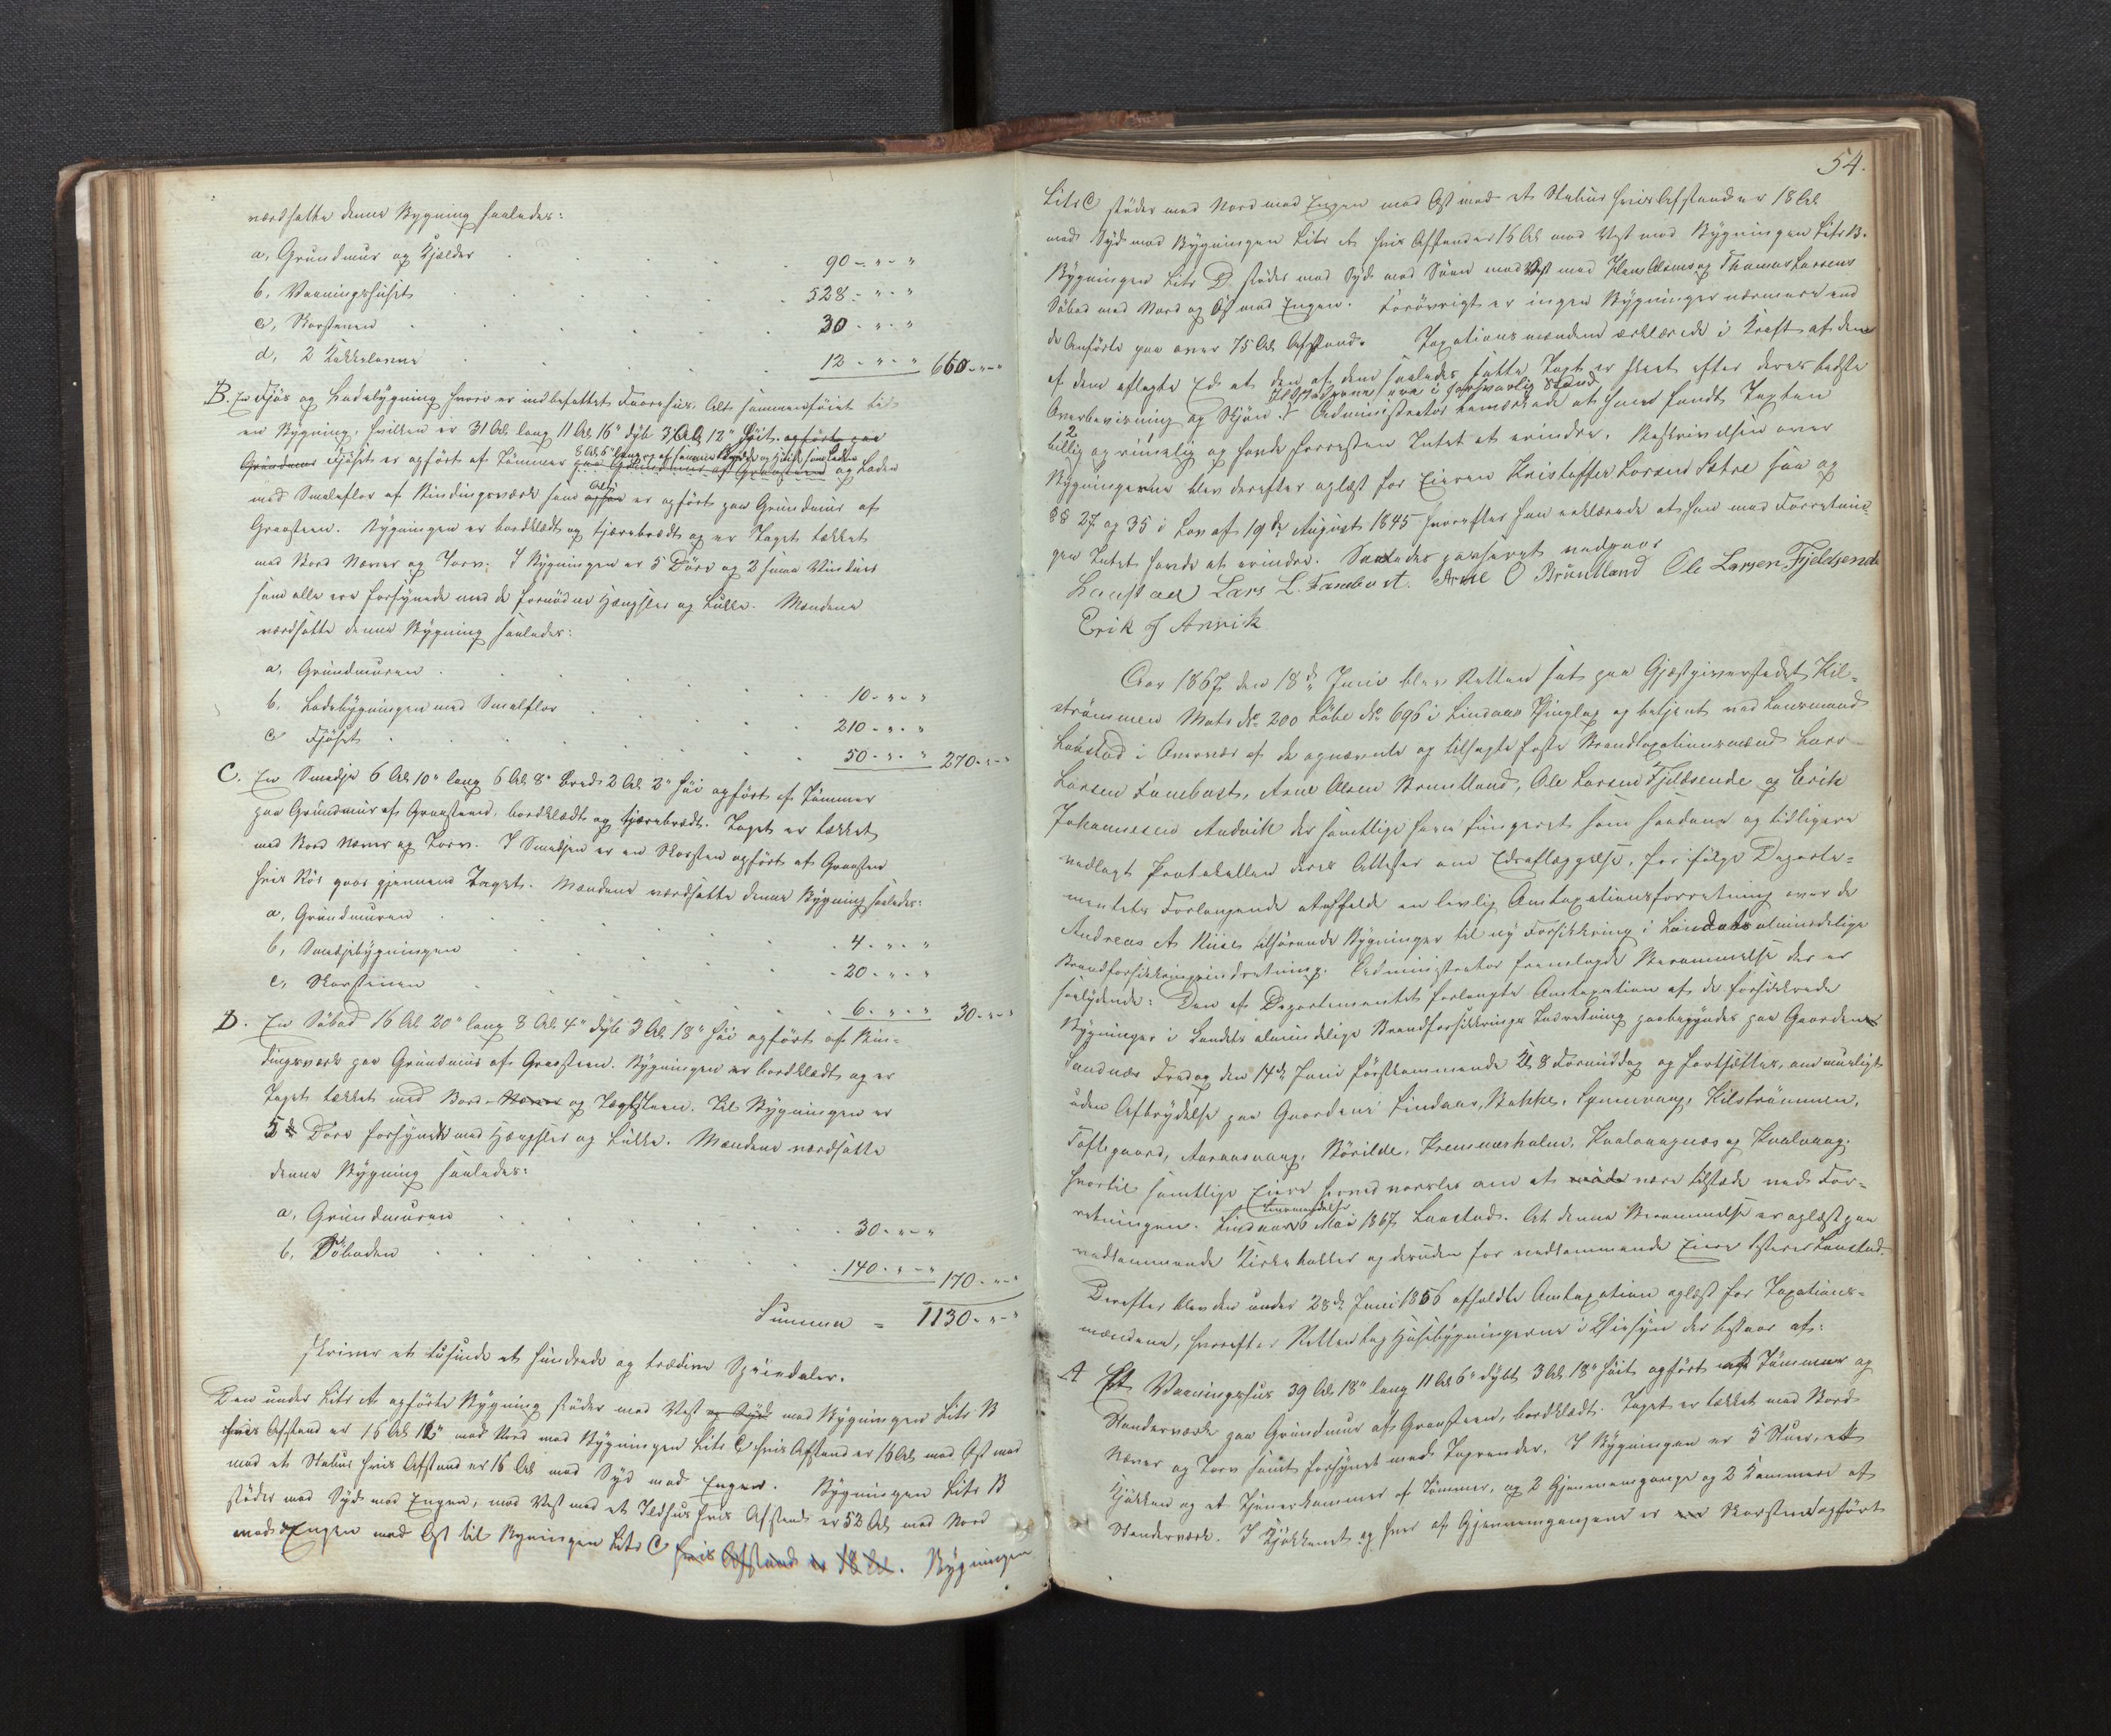 værdsatte denne Bygning saaledes:
a, Grundmur og Kjælder 90 - " - "
b, Vaaningshuset 528 - " - "
c, Skorstenen 30 - " - "
d, 2 Kakkelovne 12 - " - " 660 - " - "
B. En Fjøs og Ladebygning hvori er indbefattet Faarehuus, Alt sammenføiet til
en Bygning, hvilken er 31 Al. lang 11 Al 16" dyb 3 Al 12" høit. opført paa
Grundmur Fjøset er opført af Tømmer 8 Al 6" lang og af samme Brede og Høide som Laden paa Grundmur af Graasteen og Laden
med Smaleflor af Bindingsværk som Alt er opført paa Grundmur af
Graasteen. Bygningen er bordklædt og tjærebrædt og er Taget tækket
med Bord Næver og Torv. I Bygningen er 5 Døre og 2 smaa Vinduer
som alle ere forsynede med de fornødne Hængsler og Lukke. Mændene
værdsatte denne Bygning saaledes:
a, Grundmuren 10 - " - "
b, Ladebygningen med Smalflor 210 - " - "
c Fjøset 50 - " - " 270 - " - "
C. En Smedje 6 Al. 10" lang 6 Al 8" bred 2 Al 2" høi opført af Tømmer
paa Grundmur af Graasteen, bordklædt og tjærebrædt. Taget er tækket
med Bord Næver og Torv. I Smedjen er en Skorsten opført af Graasten
hvis Rør gaar gjennem Taget. Mændene værdsatte denne Bygning saaledes:
a, Grundmuren 4 - " - "
b, Smedjebygningen 20 - " - "
c, Skorstenen 6 - " - " 30 - " - "
D. En Søbod 16 Al 20" lang 8 Al 4" dyb 3 Al 18" høi opført af Bin-
dingsværk paa Grundmur af Graasteen. Bygningen er bordklædt og er
Taget tækket med Bord Næver og Taglsteen. Til Bygningen er
5 Døre forsynede med Hængsler og Lukke. Mændene værdsatte
denne Bygning saaledes:
a, Grundmuren 30 - " - "
b, Søboden 140 - " - " 170 - " - "
Summa = 1130 - " - "
skriver et tusinde et hundrede og trædive Speciedaler.
Den under Litr A opførte Bygning støder mod Vest og Syd mod Bygningen Litr B
hvis Afstand er 15 Al 12" mod Nord mod Bygningen Litr C hvis Afstand er 16 Al mod Øst mod
mod et Stabur hvis Afstand er 16 Al mod Syd mod Engen. Bygningen Litr B
støder mod Syd mod Engen, mod Vest mod et Ildhus hvis Afstand er 52 Al mod Nord
mod Engen mod Øst til Bygningen Litr C hvis Afstand er 18 Al. Bygningen
54.
Litr C støder mod Nord mod Engen mod Øst mod et Stabur hvis Afstand er 18 Al
mod Syd mod Bygningen Litr A hvis Afstand er 15 Al mod Vest mod Bygningen Litr B.
Bygningen Litr D. støder mod Syd mod Søen mod Vest mod Hans Olsens og Thomas Larsens
Søbod mod Nord og Øst mod Engen. Forøvrigt er ingen Bygninger nærmere end
de Anførte paa over 75 Al. Afstand. Taxationsmændene erklærede i Kraft af den
af dem aflagte Ed at den af dem saaledes satte Taxt er skeet efter deres bedste
Overbevisning og Skjøn. Ildstederne ere i forsvarlig Stand Administrator bemærkede at han fandt Taxten
billig og rimelig og havde forresten Intet at erindre. Beskrivelsen over
Bygningerne blev derefter oplæst for Eieren Kristoffer Larsens Sætre saa og
§§ 27 og 35 i Lov af 19de August 1845 hvorefter han erklærede at han mod Forretnin-
gen Intet havde at erindre. Saaledes passeret vedgaar
Laastad Lars L. Fammbast. Arne O Brundtland Ole Larsen Fjeldsende
Erik J Anvik
Aar 1867 den 18de Juni blev Retten sat paa Gjæstgiverstedet Kil-
strømmen Matr No 200 Løbe No 696 i Lindaas Thinglag og betjent ved Lensmand
Laastad i Overvær af de opnævnte og tilsagte faste Brandtaxationsmænd Lars
Larsen Fambast, Arne Olsen Brundtland, Ole Larsen Fjeldsende og Erik
Johannessen Andvik der samtlige have fungeret som saadanne og tidligere
vedlagt Protokollen deres Attester om Edsaflæggelse, for ifølge Departe-
mentets Forlangende at afholde en lovlig Omtaxationsforretning over de
Andreas A. Riise tilhørende Bygninger til ny Forsikkring i Landets almindelige
Brandforsikkringsindretning. Administrator fremlagde Berammelse der er
saalydende: Den af Departementet forlangte Omtaxation af de forsikkrede
Bygninger i Landets almindelige Brandforsikkrings Indretning paabegyndes paa Gaarden
Sandnæs Fredag den 14de Juni førstkommende Kl 8 Formiddag og fortsættes, om muligt
uden Afbrydelse paa Gaardene Lindaas, Bakke, Spurvaag, Kilstrømmen,
Toftegaard, Aaraasvaag, Børilde, Kremmerholm, Kvalvaagnæs og Kvalvaag.
hvortil samtlige Eiere herved varsles om at møde være tilstæde ved For-
retningen. Lindaas Lensmandsbestilling 6 Mai 1867 Laastad. At denne Berammelse er oplæst paa
vedkommende Kirkebakker og desuden for vedkommende Eiere testerer Laastad.
Derefter blev den under 28de Juni 1856 afholdte Omtaxation oplæst for Taxations-
mændene, hvorefter Retten tog Husebygningerne i Øiesyn der bestaar af:
A Et Vaaningshus 39 Al 18" lang 11 Al 6" dybt 3 Al 18" høit opført af Tømmer og
Standerværk paa Grundmur af Graasteen, bordklædt. Taget er tækket med Bord
Næver og Torv samt forsynet med Tagrender. I Bygningen er 5 Stuer, et
Kjøkken og et Pigekammer af Tømmer, og 2 Gjennemgange og 2 Kammere af
Standerværk. I Kjøkkenet og hver af Gjennemgangene er en Skorsteen opført